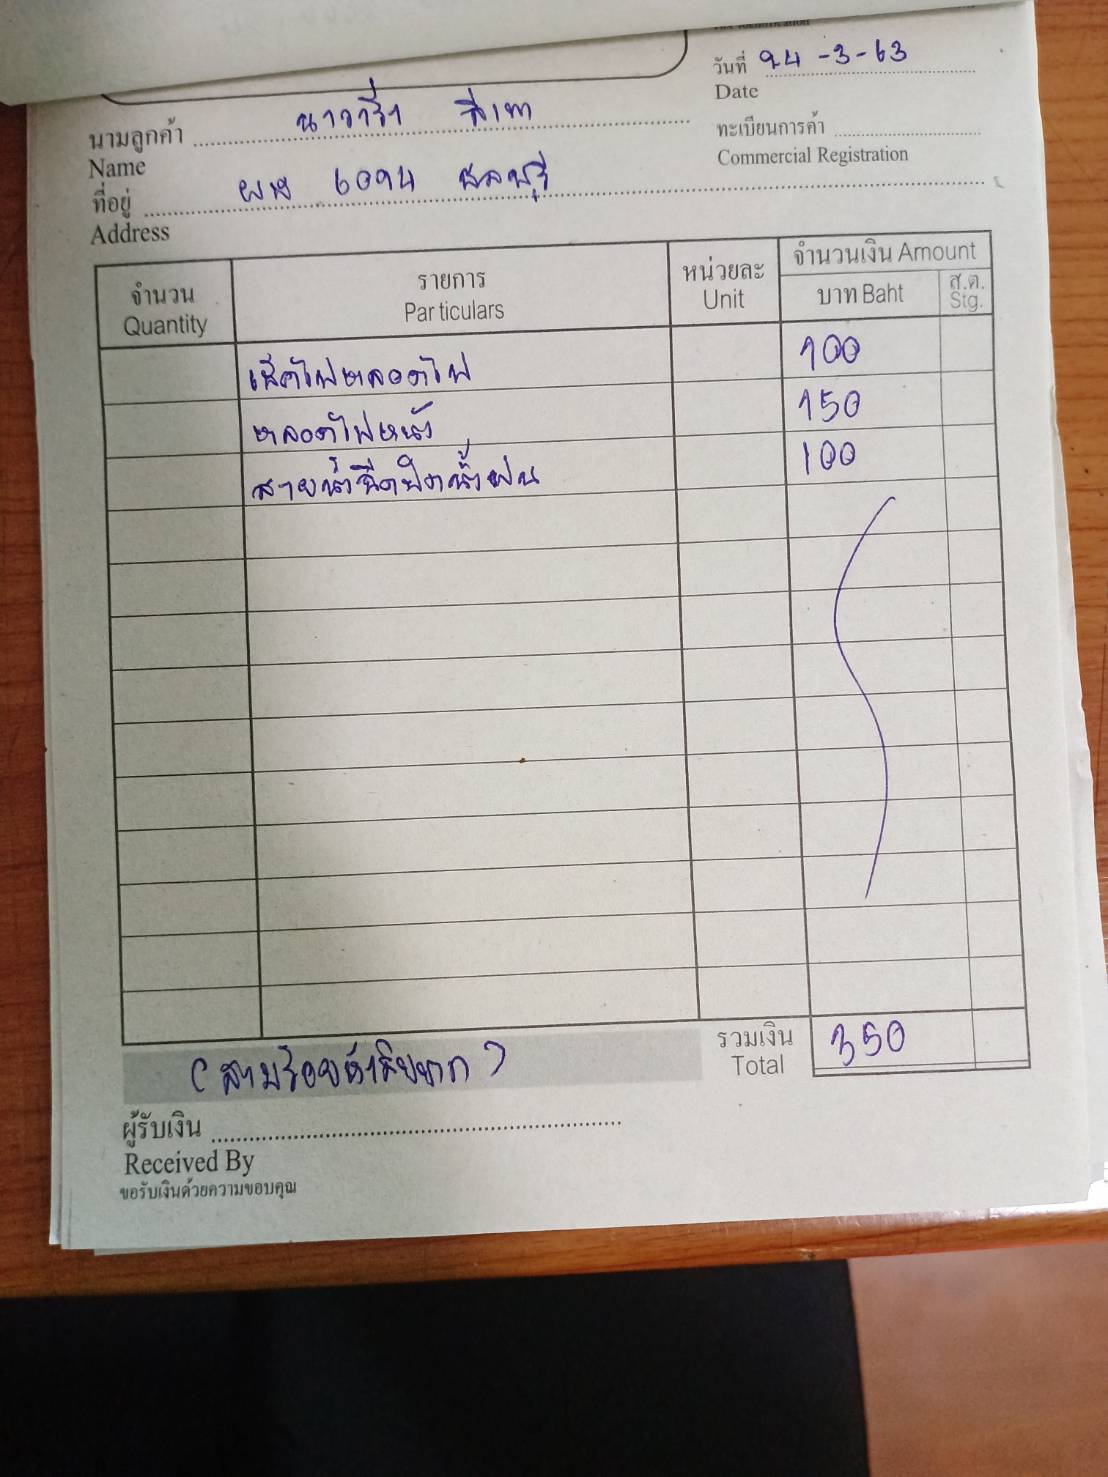 วันที่ 24-3-63
Date
นามลูกค้า
Name
ทะเบียนการค้า
Commercial Registration
ที่อยู่ ชลบุรี
Address
จำนวน
Quantity
รายการ
Particulars
หน่วยละ
Unit
จำนวนเงิน Amount
บาท Baht
ส.ต.
Stg.
เช็คไฟหลอดไฟ 100
หลอดไฟหน้า 150
สายน้ำฉีดปัดน้ำฝน 100
รวมเงิน 350
Total
(สามร้อยห้าสิบบาท)
ผู้รับเงิน
Received By
ขอรับเงินด้วยความขอบคุณ